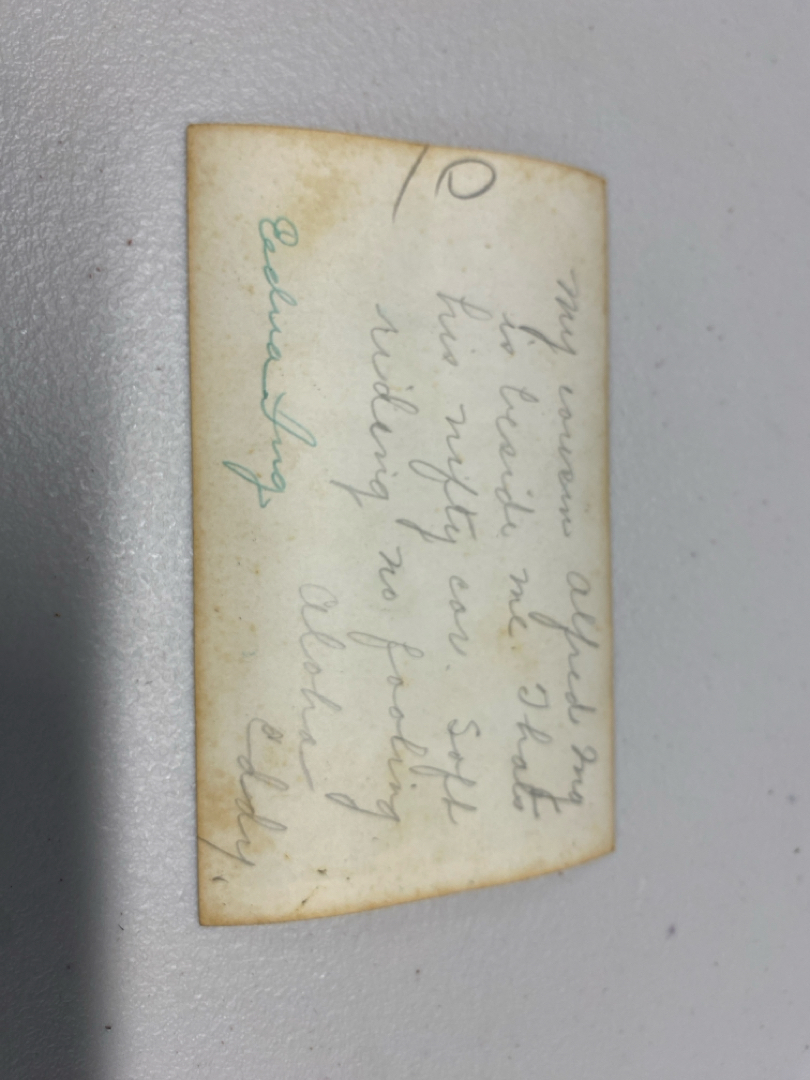 My cousin Alfred Ing
is beside me Thats
his nifty car. Soft
riding no fooling
Aloha
Eddy.
Ing